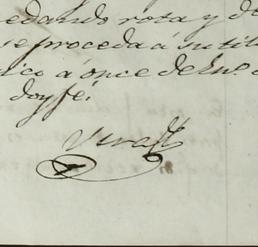 edando rota y d
se proceda á su tit
co á once de En.º
doy fé.